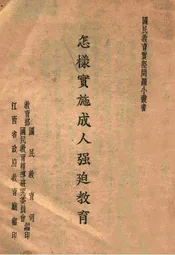 國民教育實際問題小叢書
怎樣實施成人强迫教育
教育部國民教育司
國民教育輔導研究委員會編印
江西省政府教育廳翻印